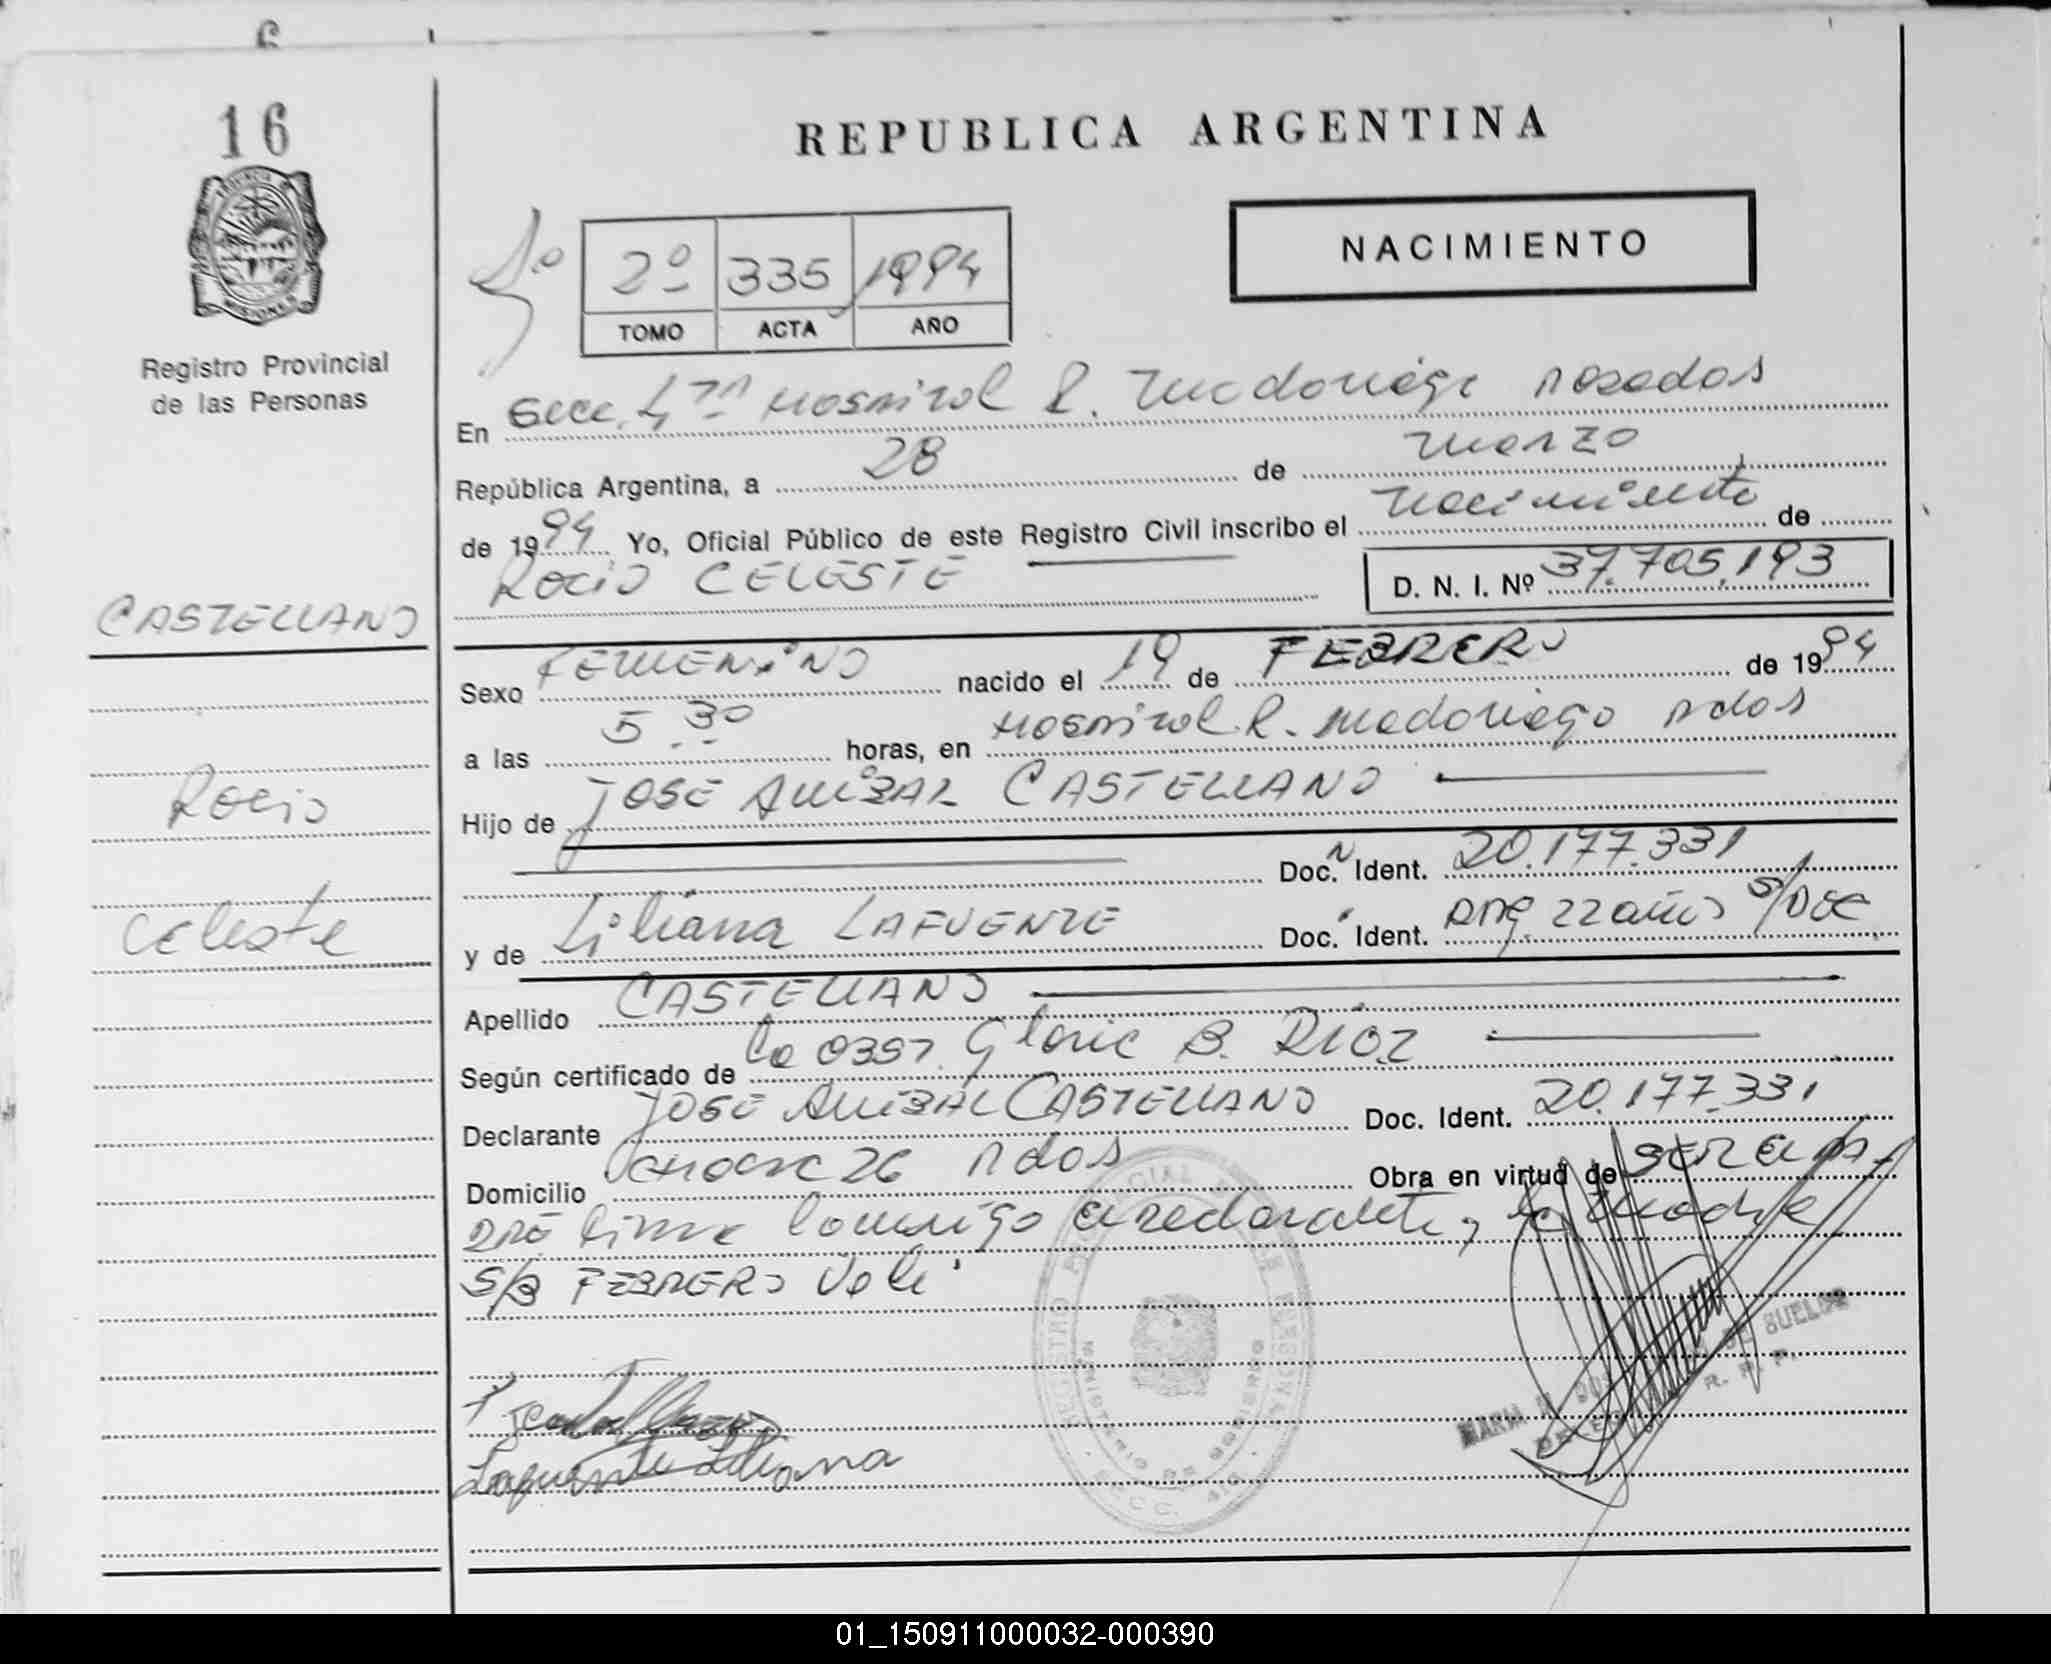 16
REPUBLICA ARGENTINA
NACIMIENTO
2º 335 1994
TOMO ACTA AÑO
Registro Provincial
de las Personas
En Secc. Hospital R. Madariaga Posadas
República Argentina, a 28 de Marzo
de 1994 Yo, Oficial Público de este Registro Civil inscribo el Nacimiento de
ROCIO CELESTE D. N. I. Nº 37.705.193
CASTELLANO
Sexo FEMENINO nacido el 19 de FEBRERO de 1994
a las 5.30 horas, en Hospital R. Madariaga Pdas
Rocio
Hijo de JOSE ANIBAL CASTELLANO
Doc. Ident. 20.177.331
Celeste
y de Liliana LAFUENTE Doc. Ident. Arg. 22 años S/DOC
Apellido CASTELLANO
Según certificado de la Obst. Gloria B. Rios
Declarante JOSE ANIBAL CASTELLANO Doc. Ident. 20.177.331
Domicilio 26 Pdas Obra en virtud de
firma conmigo el declarante, la madre
S/B FEBRERO Vale
REGISTRO PROVINCIAL DE LAS PERSONAS
MINISTERIO DE GOBIERNO
Lafuente Liliana
R. P. P.
01_150911000032-000390